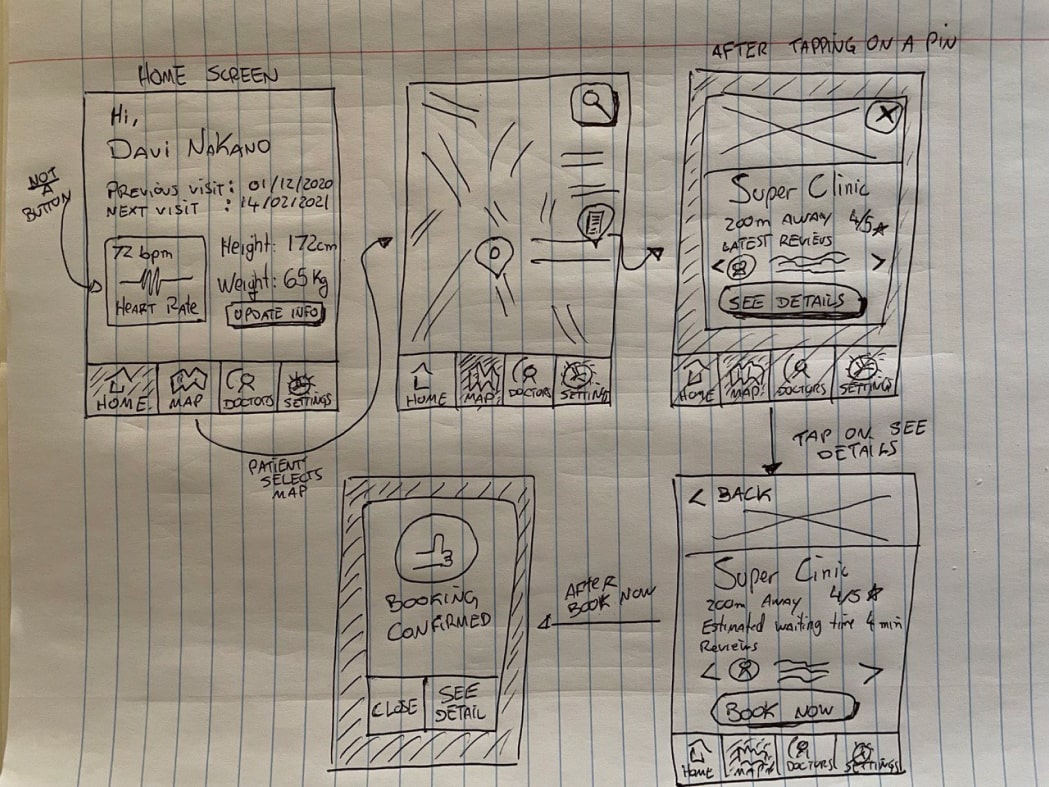 HOME SCREEN
Hi,
DAVI NAKANO
PREVIOUS VISIT: 01/12/2020
NEXT VISIT : 14/02/2021
NOT
A
BUTTON
72 bpm
HEART RATE
Height: 172cm
Weight: 65 Kg
UPDATE INFO
HOME
MAP
DOCTORS
SETTINGS
PATIENT
SELECTS
MAP
HOME
MAP
DOCTORS
SETTING
AFTER TAPPING ON A PIN
X
Super Clinic
200m AWAY 4/5
LATEST REVIEWS
< >
SEE DETAILS
HOME
MAP
DOCTORS
SETTINGS
TAP ON SEE
DETAILS
< BACK
Super Clinic
200m AWAY 4/5
Estimated waiting time 4 min
Reviews
< >
BOOK NOW
HOME
MAP
DOCTORS
SETTINGS
AFTER
BOOK NOW
BOOKING
CONFIRMED
CLOSE
SEE
DETAIL